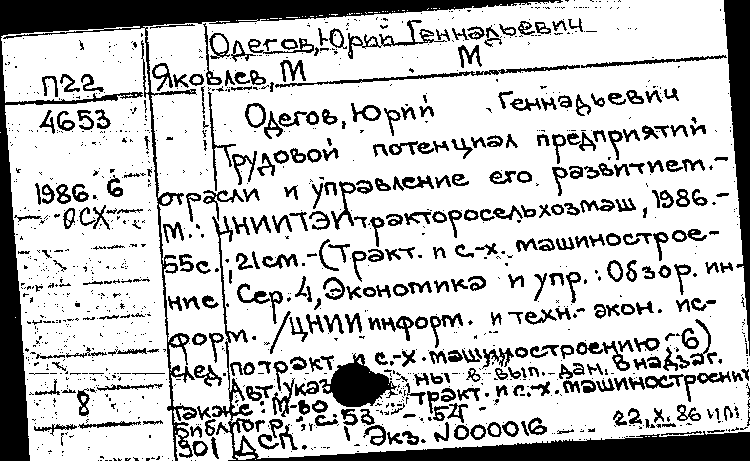 Одегов, Юрий Геннадьевич
П22 Яковлев, М М
4653 Одегов, Юрий Геннадьевич
Трудовой потенциал предприятий
1986.6 отрасли и управление его развитием.-
ОСХ М.: ЦНИИТЭИтракторосельхозмаш, 1986.-
55с.; 21см.-(Тракт. и с.-х. машинострое-
ние. Сер. 4, Экономика и упр.: Обзор. ин-
форм. /ЦНИИ информ. и техн.-экон. ис-
след. по тракт. и с.-х. машиностроению; 6)
Авт. указ ны в вып. дан. В надзаг.
8 также: М-во тракт. и с.-х. машиностроения
Библиогр.: с. 53 - 54
901 ДСП. Экз. N000016 22.X.86